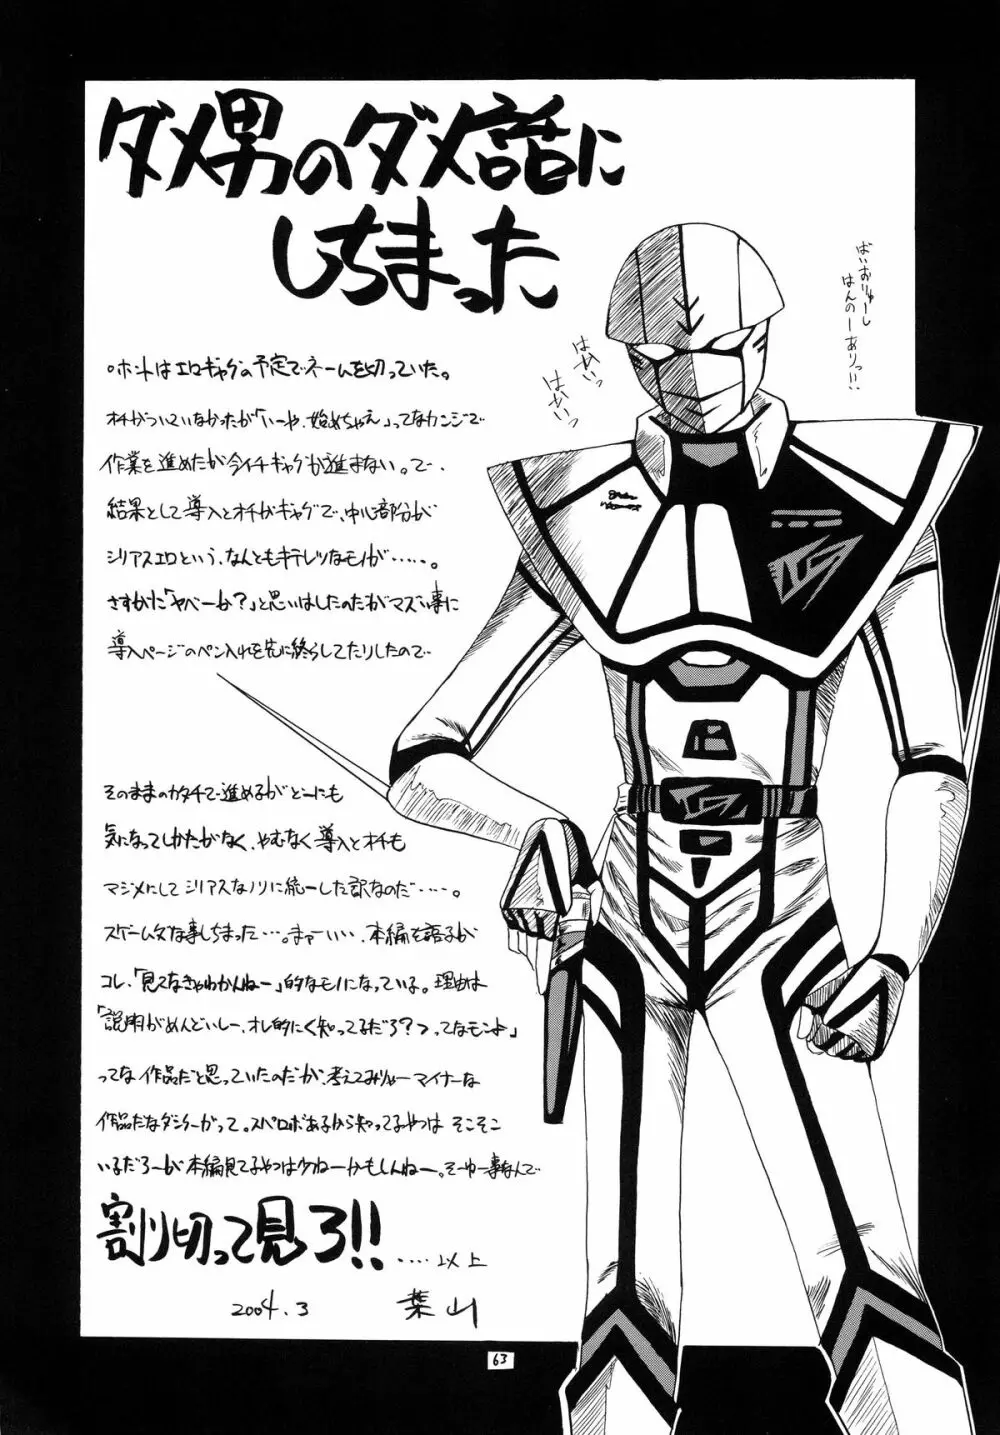 ダメ男のダメ話に
しちまった
ばいおりゅーし
はんのーありっ!!
はぁいっ
はぁいっ
。ホントはエロギャグの予定でネームを切っていた。
オチがついていなかったが「いーや、始めちゃえ」ってなカンジで
作業を進めたが今イチギャグが進まない。で、
結果として導入とオチがギャグで、中心部分が
シリアスエロという、なんともキテレツなモノが……。
さすがに「ヤベーか?」と思いはしたのだがマズい事に
導入ページのペン入れを先に終らしてたりしたので
そのままのカタチで進めるがどーにも
気になってしかたがなく、やむなく導入とオチも
マジメにしてシリアスなノリに統一した訳なのだ……。
スゲームダな事しちまった…。まァーいい、本編を語るが
コレ、「見てなきゃわかんねー」的なモノになっている。理由は
「説明がめんどいしー、オレ的にく知ってるだろ?つってなモンよ」
ってな作品だと思っていたのだが、考えてみりゃーマイナーな
作品だなダンクーガって。スパロボあるから知ってるやつは そこそこ
いるだろーが本編見てるやつは少ねーかもしんねー。そーゆー事なんで
割り切って見ろ!!
‥‥以上
2004.3 葉山
63